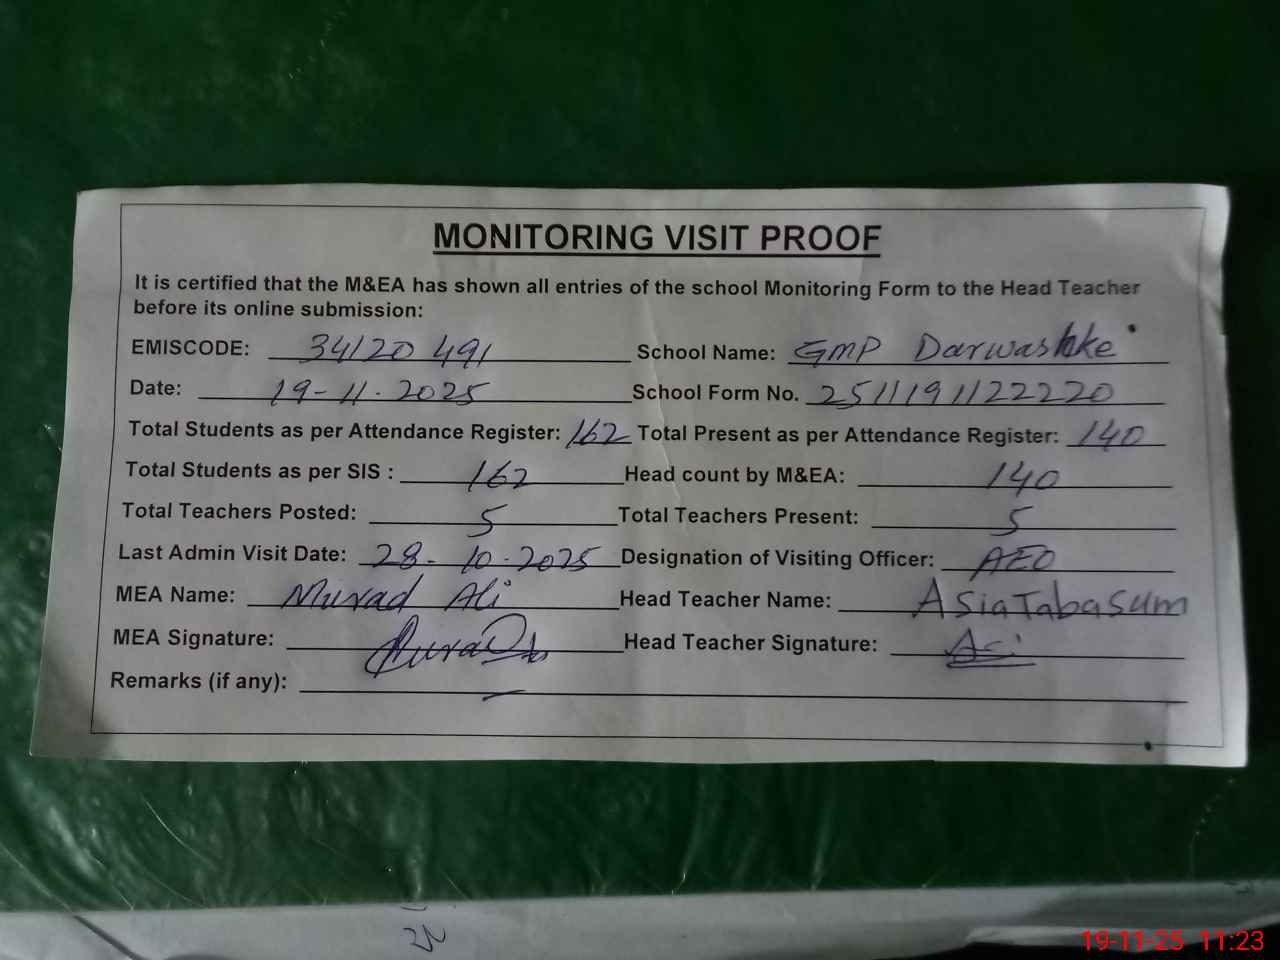 MONITORING VISIT PROOF
It is certified that the M&EA has shown all entries of the school Monitoring Form to the Head Teacher
before its online submission:
EMISCODE: 34120491 School Name: GMP Darwashke
Date: 19-11-2025 School Form No. 2511191122220
Total Students as per Attendance Register: 162 Total Present as per Attendance Register: 140
Total Students as per SIS : 162 Head count by M&EA: 140
Total Teachers Posted: 5 Total Teachers Present: 5
Last Admin Visit Date: 28-10-2025 Designation of Visiting Officer: AEO
MEA Name: Murad Ali Head Teacher Name: Asia Tabasum
MEA Signature: Head Teacher Signature:
Remarks (if any): —
19-11-25 11:23